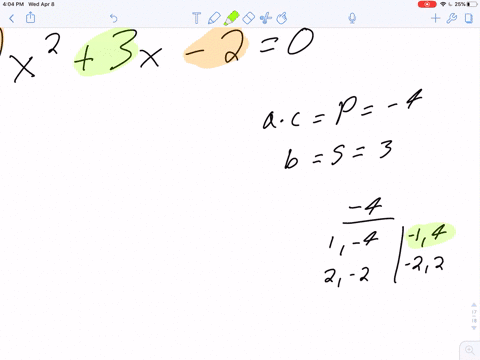 4:04 PM Wed Apr 8
25%
x² + 3x - 2 = 0
a·c = P = -4
b = S = 3
-4
1, -4 | -1, 4
2, -2 | -2, 2